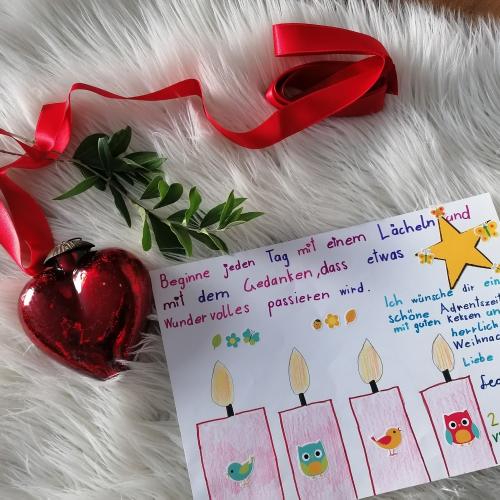 Beginne jeden Tag mit einem Lächeln und
mit dem Gedanken, dass etwas
Wundervolles passieren wird.
Ich wünsche dir ein
schöne Adventszeit
mit guten Keksen un
herrlich
Weihnac
Liebe